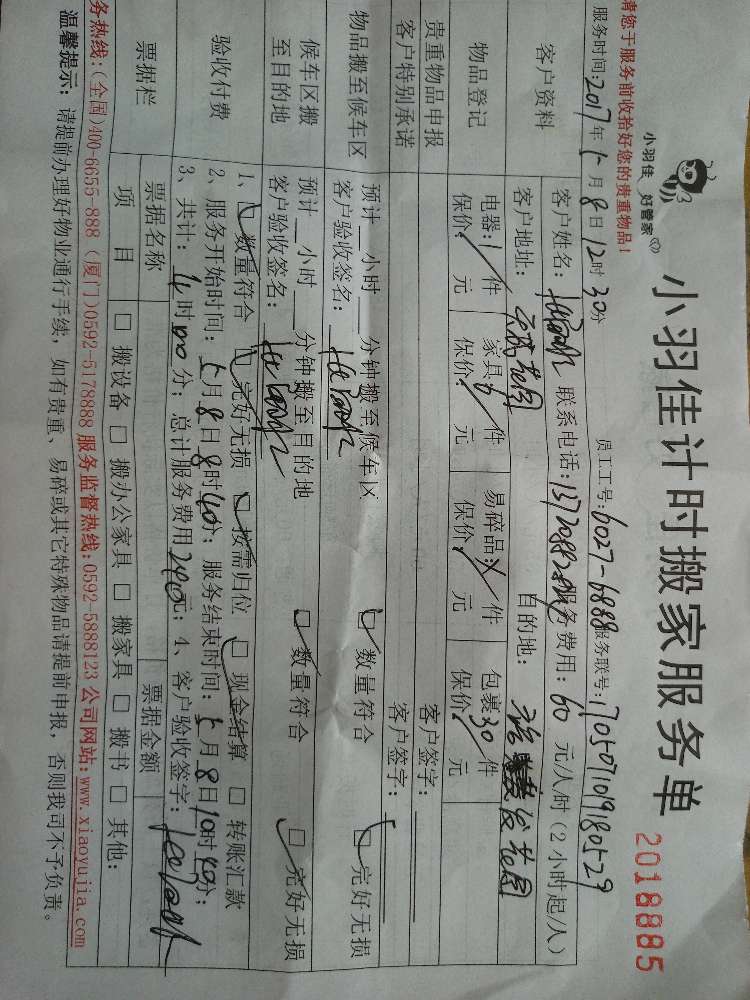 小羽佳 好管家
小羽佳计时搬家服务单
2018885
请您于服务前收拾好您的贵重物品!
员工工号:6027-6888 服务联号:1705071019180529
服务时间:2017年5月8日12时30分
客户资料
客户姓名: 联系电话: 服务费用:60元/人/时(2小时起/人)
客户地址: 目的地:
物品登记
电器:1件 家具6件 易碎品:/件 包裹30件
保价:/元 保价/元 保价/元 保价/元
贵重物品申报
客户签字:
客户特别承诺
客户签字:
物品搬至候车区
预计 小时 分钟搬至候车区 数量符合 完好无损
客户验收签名:
候车区搬至目的地
预计 小时 分钟搬至目的地 数量符合 完好无损
客户验收签名:
验收付费
1、数量符合 完好无损 按需归位 现金结算 转账汇款
2、服务开始时间:5月8日8时40分;服务结束时间:5月8日10时40分;
3、共计:4时00分;总计服务费用240元;4、客户验收签字:
票据栏
票据名称 票据金额
项目 搬设备 搬办公家具 搬家具 搬书 其他:
务热线:(全国)400-6655-888 (厦门)0592-5178888 服务监督热线:0592-5888123 公司网站:www.xiaoyujia.com
温馨提示:请提前办理好物业通行手续,如有贵重、易碎或其它特殊物品请提前申报,否则我司不予负责。